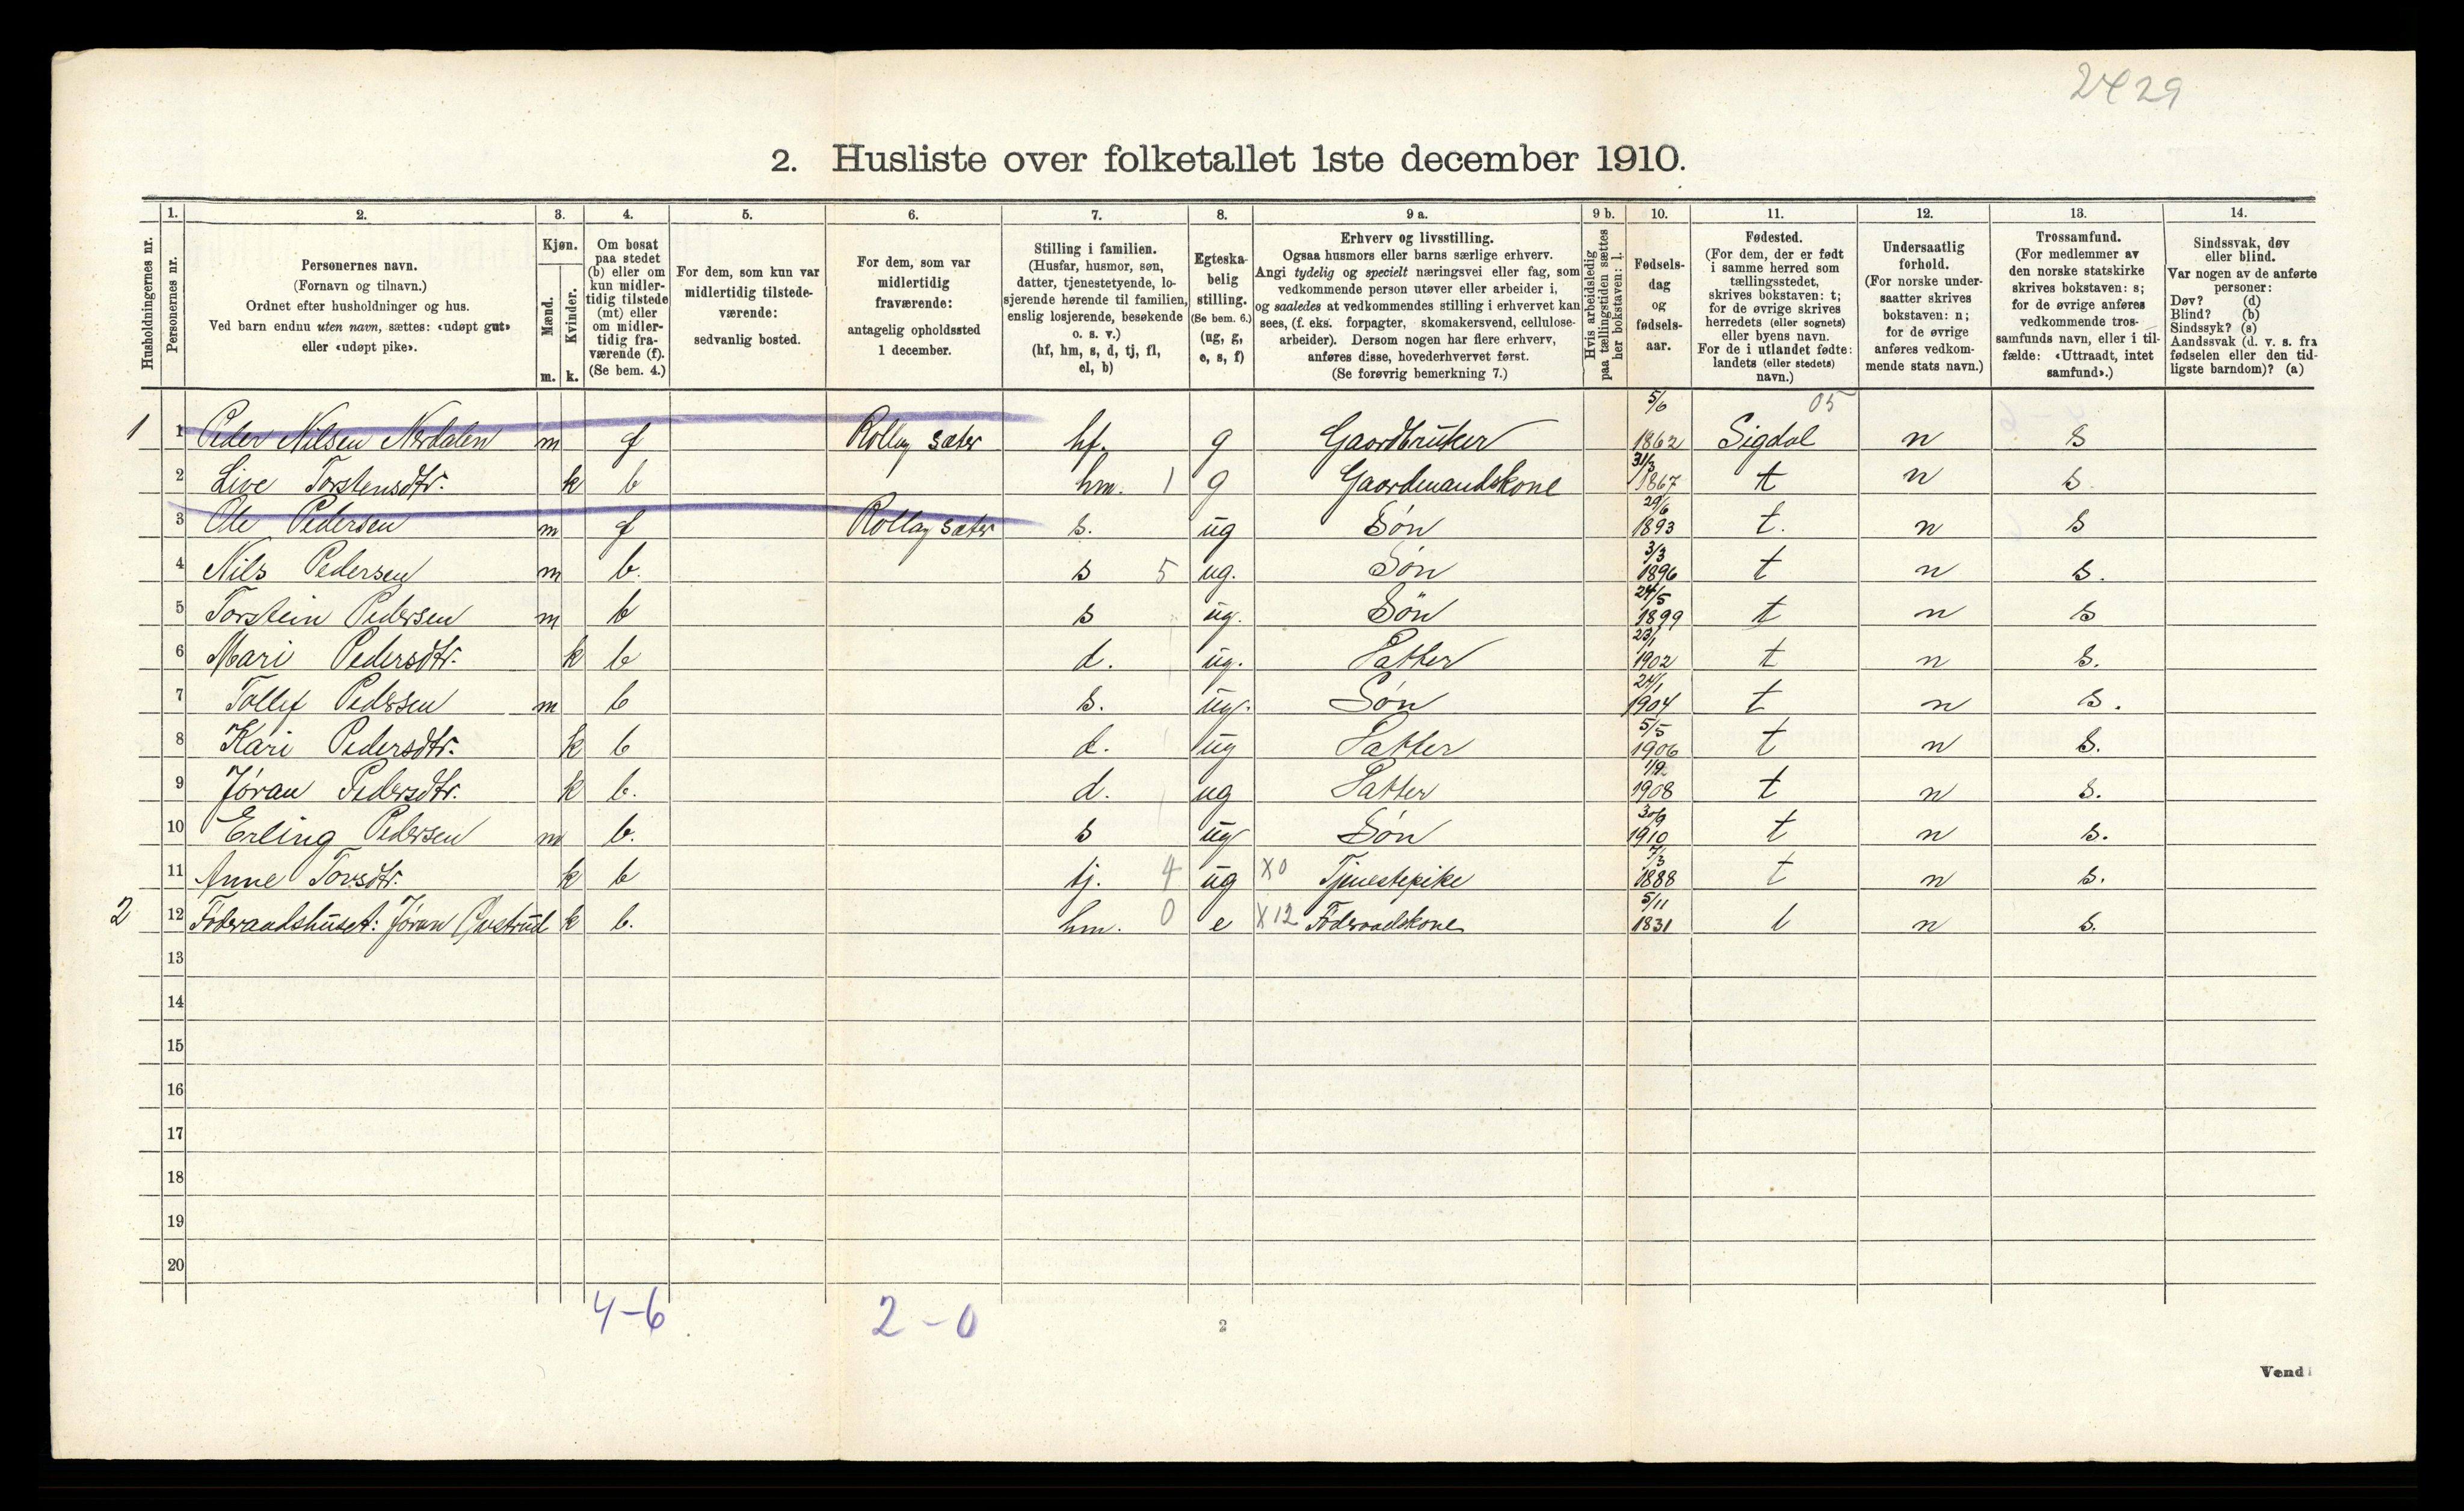 2429
2. Husliste over folketallet 1ste december 1910.
Husholdningernes nr.
1.
Personernes nr.
2.
Personernes navn.
(Fornavn og tilnavn.)
Ordnet efter husholdninger og hus.
Ved barn endnu uten navn, sættes: «udøpt gut»
eller «udøpt pike».
3.
Kjøn.
Mænd.
Kvinder.
m. k.
4.
Om bosat
paa stedet
(b) eller om
kun midler-
tidig tilstede
(mt) eller
om midler-
tidig fra-
værende (f).
(Se bem. 4.)
5.
For dem, som kun var
midlertidig tilstede-
værende:
sedvanlig bosted.
6.
For dem, som var
midlertidig
fraværende:
antagelig opholdssted
1 december.
7.
Stilling i familien.
(Husfar, husmor, søn,
datter, tjenestetyende, lo-
sjerende hørende til familien,
enslig losjerende, besøkende
o. s. v.)
(hf, hm, s, d, tj, fl,
el, b)
8.
Egteska-
belig
stilling.
(Se bem. 6.)
(ug, g,
e, s, f)
9 a.
Erhverv og livsstilling.
Ogsaa husmors eller barns særlige erhverv.
Angi tydelig og specielt næringsvei eller fag, som
vedkommende person utøver eller arbeider i,
og saaledes at vedkommendes stilling i erhvervet kan
sees, (f. eks. forpagter, skomakersvend, cellulose-
arbeider). Dersom nogen har flere erhverv,
anføres disse, hovederhvervet først.
(Se forøvrig bemerkning 7.)
9 b.
Hvis arbeidsledig
paa tællingstiden sættes
her bokstaven: l.
10.
Fødsels-
dag
og
fødsels-
aar.
11.
Fødested.
(For dem, der er født
i samme herred som
tællingsstedet,
skrives bokstaven: t;
for de øvrige skrives
herredets (eller sognets)
eller byens navn.
For de i utlandet fødte:
landets (eller stedets)
navn.)
12.
Undersaatlig
forhold.
(For norske under-
saatter skrives
bokstaven: n;
for de øvrige
anføres vedkom-
mende stats navn.)
13.
Trossamfund.
(For medlemmer av
den norske statskirke
skrives bokstaven: s;
for de øvrige anføres
vedkommende tros-
samfunds navn, eller i til-
fælde: «Uttraadt, intet
samfund».)
14.
Sindssvak, døv
eller blind.
Var nogen av de anførte
personer:
Døv? (d)
Blind? (b)
Sindssyk? (s)
Aandssvak (d. v. s. fra
fødselen eller den tid-
ligste barndom)? (a)
1 1 Peder Nilsen Nerdalen m f Rollag sæter hf. g Gaardbruker 5/6 1862 Sigdal 05 n s
2 Live Torstensdtr. k b hm. 1 g Gaardmandskone 31/3 1867 t n s.
3 Ole Pedersen m f Rollag sæter s. ug Søn 29/6 1893 t. n s
4 Nils Pedersen m b. s 5 ug. Søn 3/3 1896 t n s.
5 Torstein Pedersen m b s ug. Søn 24/5 1899 t n s
6 Mari Pedersdtr. k b d. ug. Datter 23/1 1902 t n s.
7 Tollef Pedersen m b s. ug. Søn 24/1 1904 t n s.
8 Kari Pedersdtr. k b d. ug Datter 5/5 1906 t n s.
9 Jøran Pedersdtr. k b. d. ug Datter 1/9 1908 t n s.
10 Erling Pedersen m b. s ug Søn 30/9 1910 t n s.
11 Anne Torsdtr. k b tj. 4 ug X0 Tjenestepike 7/3 1888 t n s.
2 12 Føderaadshuset: Jøran k b. hm. 0 e X12 Føderaadskone 5/11 1831 t n s.
13
14
15
16
17
18
19
20
4-6 2-0
2
Vend